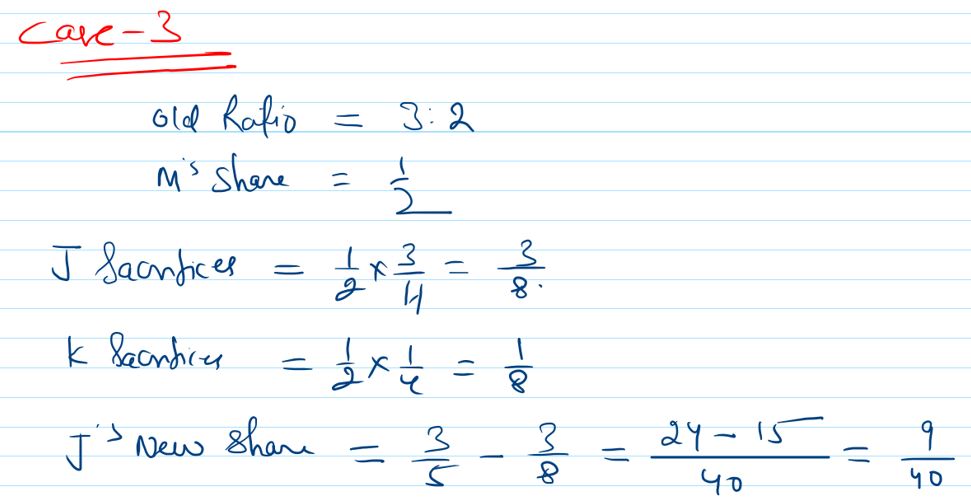 Case-3
Old Ratio = 3:2
M's Share = 1/2
J Sacrifices = 1/2 × 3/4 = 3/8.
K Sacrifices = 1/2 × 1/4 = 1/8
J's New Share = 3/5 - 3/8 = 24-15/40 = 9/40